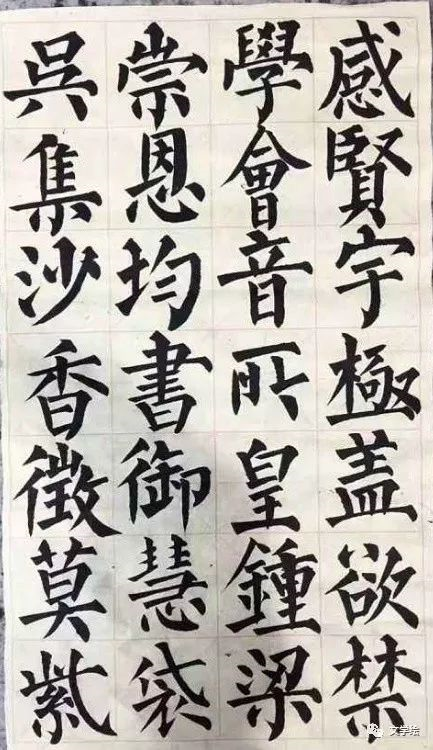 感賢宇極蓋欲禁
學會音所皇鍾梁
崇恩均書御慧袋
吳集沙香徵莫紫
文学坛